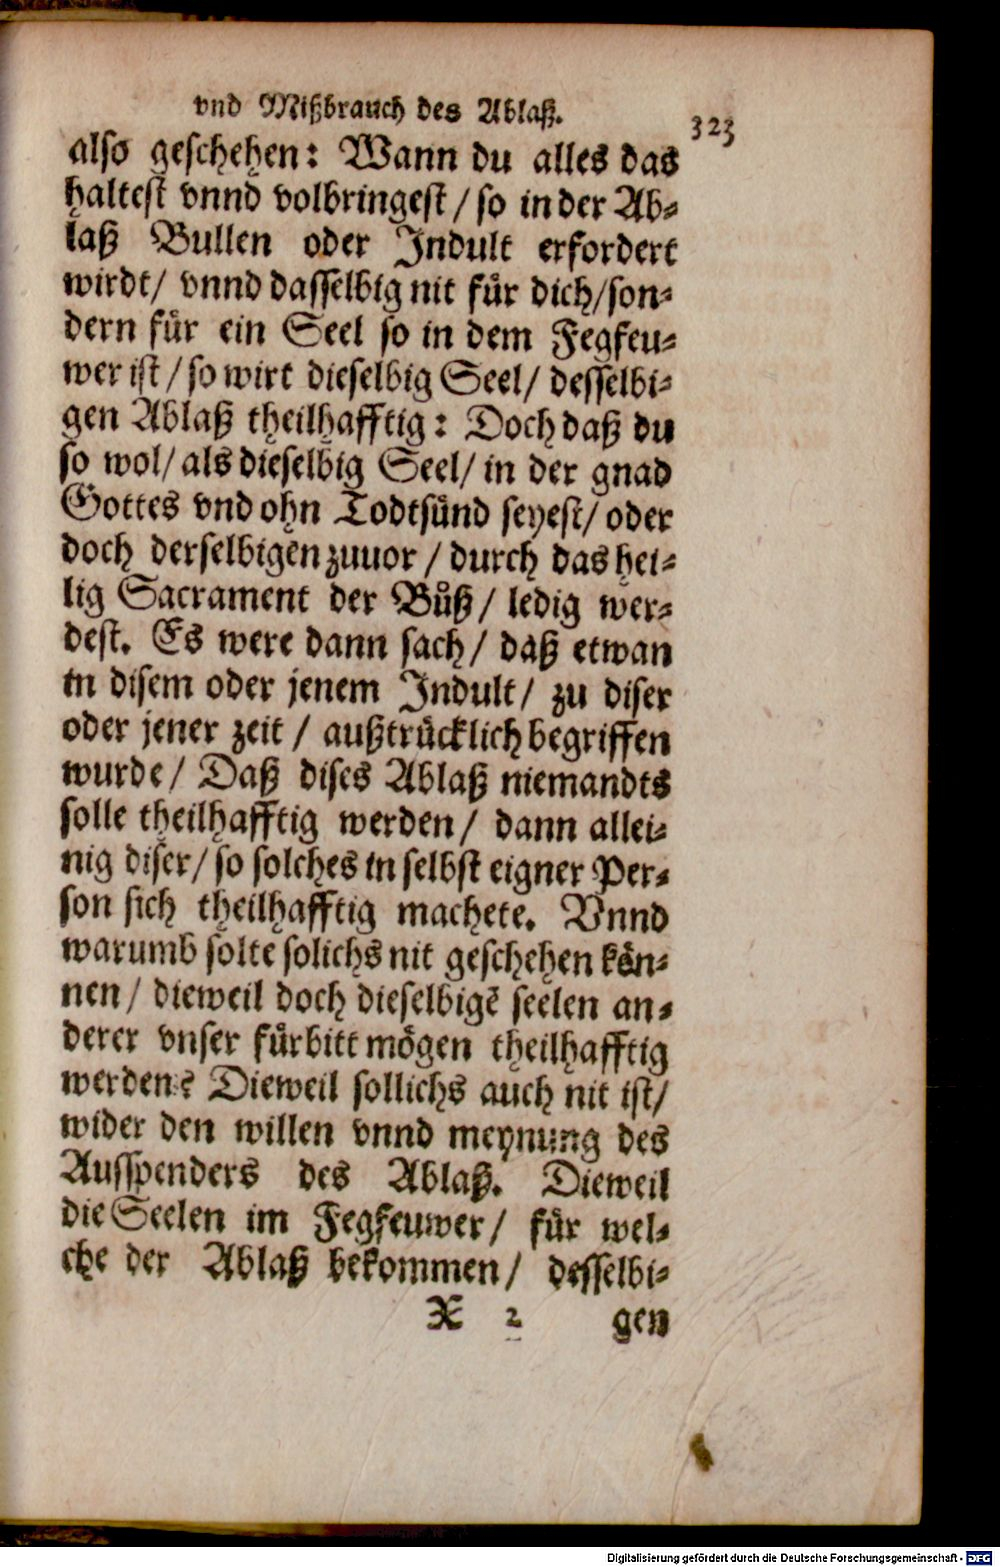 vnd Mißbrauch des Ablaß.
323
also geschehen: Wann du alles das
haltest vnnd volbringest / so in der Ab-
laß Bullen oder Indult erfordert
wirdt / vnnd dasselbig nit fuͤr dich / son-
dern fuͤr ein Seel so in dem Fegfeu-
wer ist / so wirt dieselbig Seel / desselbi-
gen Ablaß theilhafftig: Doch daß du
so wol / als dieselbig Seel / in der gnad
Gottes vnd ohn Todtsuͤnd seyest / oder
doch derselbigen zuuor / durch das hei-
lig Sacrament der Buͦß / ledig wer-
dest. Es were dann sach / daß etwan
in disem oder jenem Indult / zu diser
oder jener zeit / außtruͤcklich begriffen
wurde / Daß dises Ablaß niemandts
solle theilhafftig werden / dann allei-
nig diser / so solches in selbst eigner Per-
son sich theilhafftig machete. Vnnd
warumb solte solichs nit geschehen koͤn-
nen / dieweil doch dieselbigē seelen an-
derer vnser fuͤrbitt moͤgen theilhafftig
werden? Dieweil sollichs auch nit ist /
wider den willen vnnd meynung des
Ausspenders des Ablaß. Dieweil
die Seelen im Fegfeuwer / fuͤr wel-
che der Ablaß bekommen / desselbi-
X 2 gen
Digitalisierung gefördert durch die Deutsche Forschungsgemeinschaft - DFG